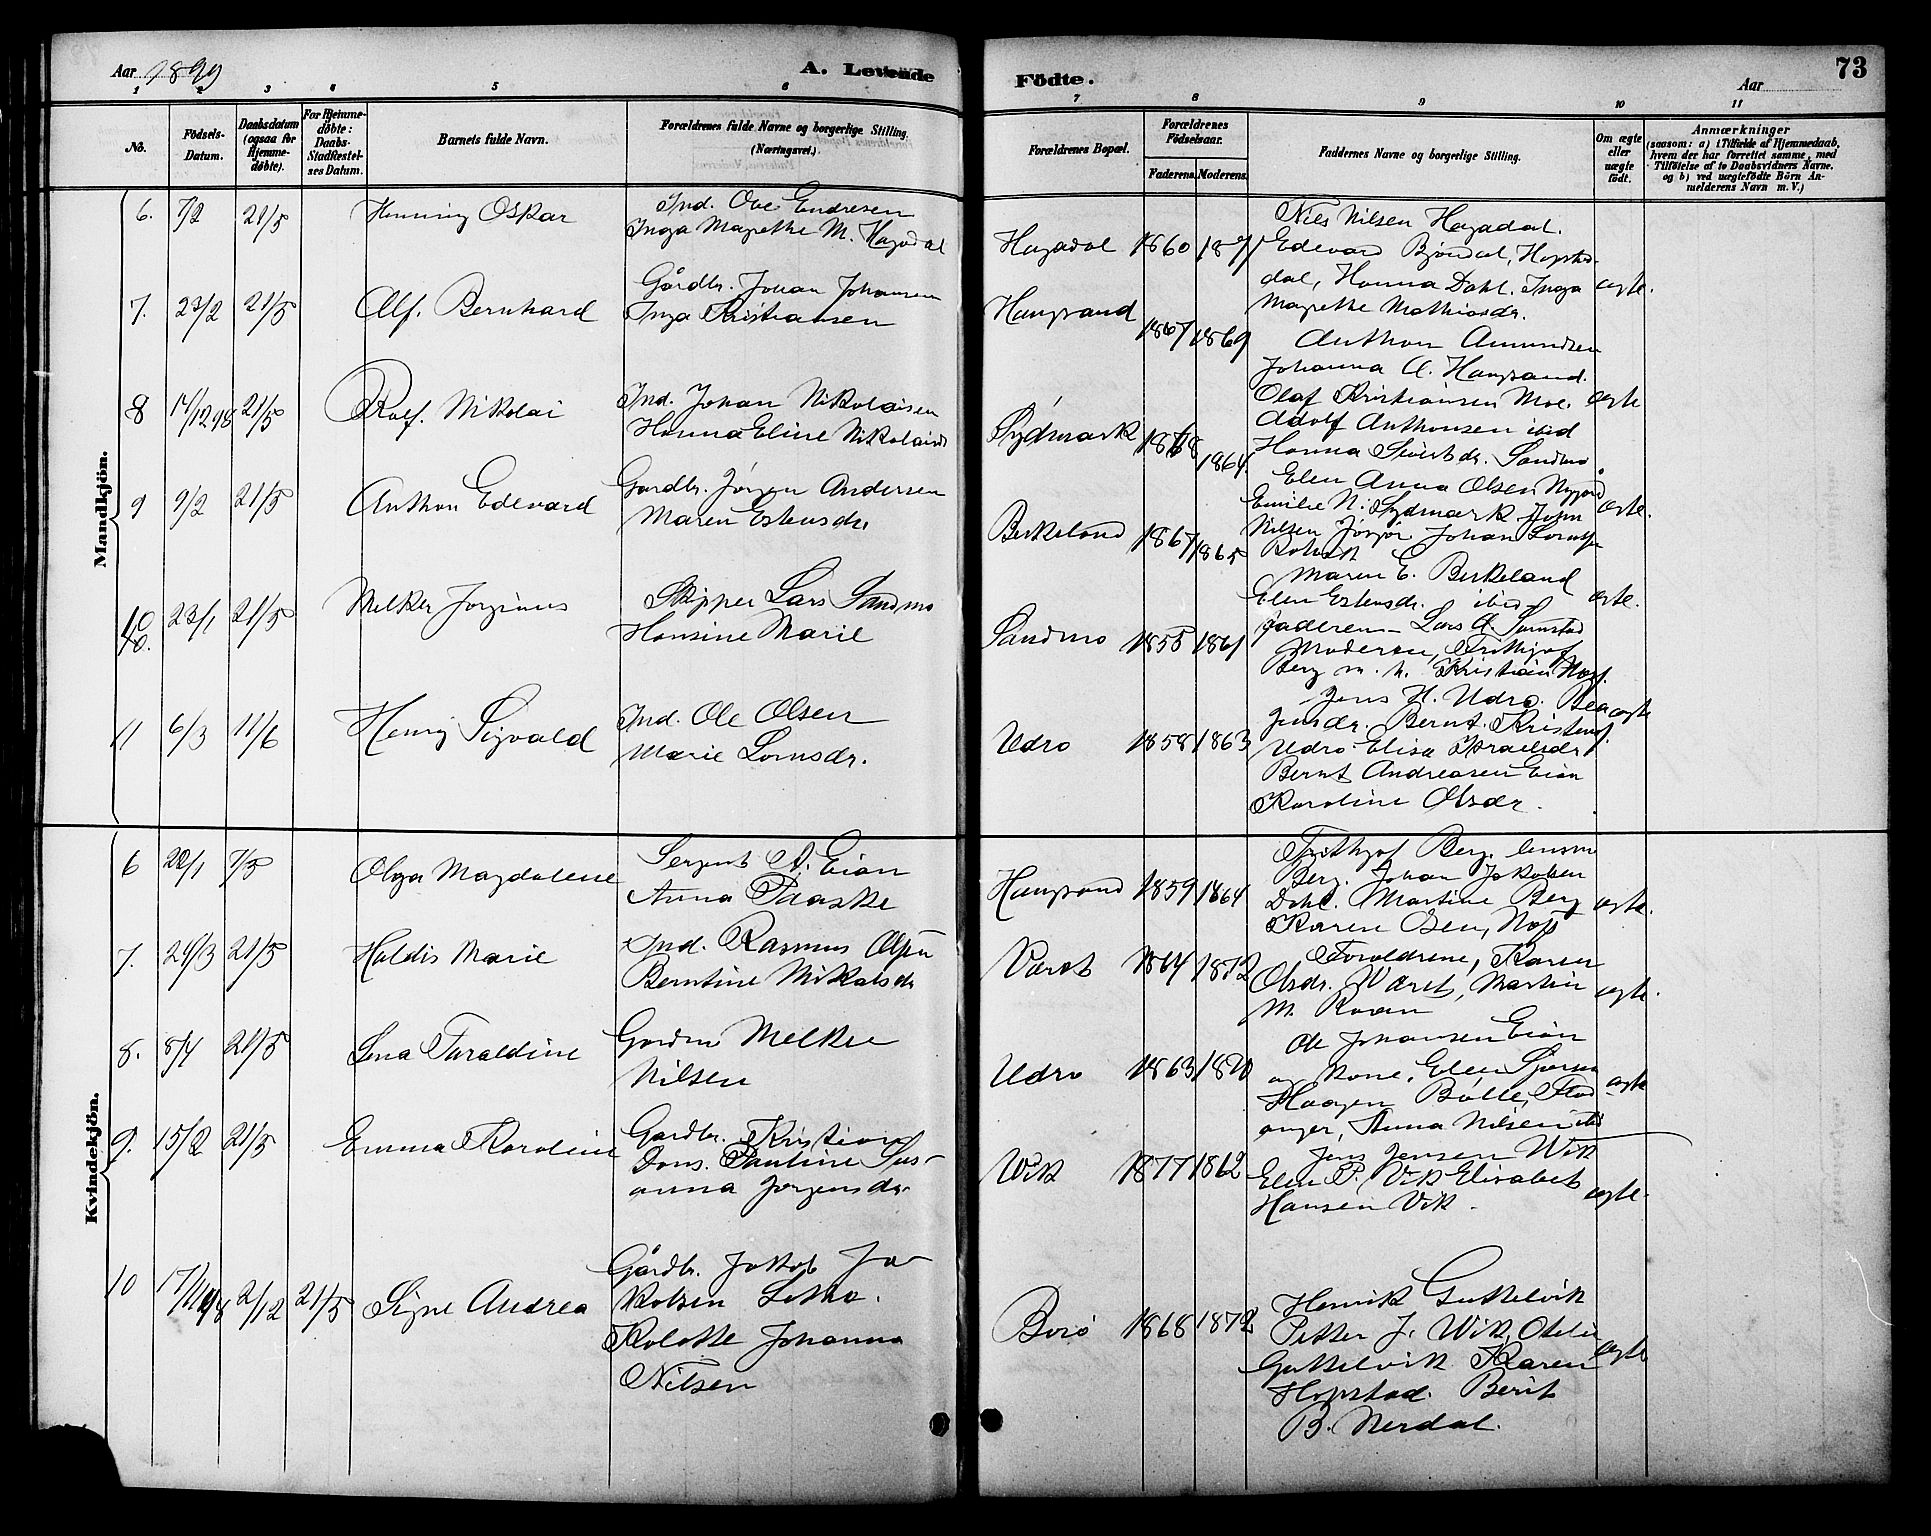 Aar 1899
A. Levende
Födte.
Aar
73
1 2 3 4 5 6
7 8 9 10 11
No.
Födsels-Datum.
Daabsdatum (ogsaa for Hjemmedøbte).
For Hjemmedöbte: Daabs-Stadfæstelses Datum.
Barnets fulde Navn.
Forældrenes fulde Navne og borgerlige Stilling.
(Næringsvei.)
Forældrenes Bopæl.
Forældrenes Födselsaar.
Faderens. Moderens.
Faddernes Navne og borgerlige Stilling.
Om ægte eller uægte födt.
Anmærkninger
(saasom: a) i Tilfælde af Hjemmedaab, hvem der har forrettet samme, med Tilföielse af to Daabsvidners Navne, og b) ved uægtefödte Börn Anmelderens Navn m. V.)
Mandkjön.
6. 7/2 21/5 Henning Oskar
Ind. Ove Endresen
Inga Marethe M. Hagadal
Hagadal 1860 1871
Niels Nilsen Hagadal.
Edevard Bjørdal, Hopstad-
dal, Hanna Dahl. Inga
Marethe Mathiasdr.
ægte.
7. 23/2 21/5 Alf. Bernhard
Gårdbr. Johan Johansen
Inga Kristiansen
Haugsand 1867 1869
Anthon Amundsen
Johanna A. Haugsand.
Olaf Kristiansen Moe.
Adolf Anthonsen ibid
ægte
8 17/12 98 21/5 Rolf. Nikolai
Ind. Johan Nikolaisen
Hanna Eline Nikolaisdr
Sydmark 1868 1864
Hanna Sivertsdr. Sandmo
Elen Anna Olsen Nygård
Emilie N. Sydmark John
Nilsen Johan
ægte.
9 9/2 21/5 Anthon Edevard
Gardbr. Jørgen Andersen
Maren Estensdr.
Berkeland 1867 1865
Maren E. Berkeland
Elen Estensdr. ibid
ægte.
10. 23/1 21/5 Melker Jorginus
Skipper Lars Sandmo
Hansine Marie
Sandmo 1855 1861
Faderen Lars A.
Moderen, Frithjof
Berg m. h. Kristian
ægte
11 6/3 11/6 Henry Sigvald
Ind. Ole Olsen
Marie Lornsdr.
Udro 1858 1863
Jens H. Udro.
Jensdr. Bernt. Kristensf.
Udro Elisa Israelsdr
Bernt Andreasen Eian
Karoline Olsdr.
Kvindekjön.
6 20/1 7/5 Olga Magdalene
Serjent A. Eian
Anna Paaske
Haugsand 1859 1864
Frithjof Berg.
Berg. Johan Jakobsen
Dahl. Martine Berg
Karen Osen,
ægte.
7. 24/3 21/5 Haldis Marie
Ind. Rasmus Olsen
Berntine Mikalsdr
Været 1864 1872
Foreldrene, Karen
Olsdr. Været, Martin
M.
ægte.
8. 8/4 21/5 Lina Taraldine
Gardm Melker
Nilsen
Udro 1863 1870
Ole Johansen Eian
og Kone, Elen
Haagen Bölle,
anger, Anna Nilsen ibid
ægte
9. 15/2 21/5 Emma Karoline
Gardbr. Kristian
Dons. Pauline Sus-
anna Jørgensdr.
Wik 1877 1862
Jens Jensen Wik
Elen P. Vik Elisabet
Hansen Vik.
ægte.
10 17/11 98 2/12 21/5 Signe Andrea
Gårdbr. Jakob Ja-
kobsen
Kolette Johanna
Nilsen
Borö 1868 1872
Henrik Guttelvik
Petter J. Wik, Otelie
Guttelvik Karen
Hopstad. Berit
B. Nerdal.
ægte